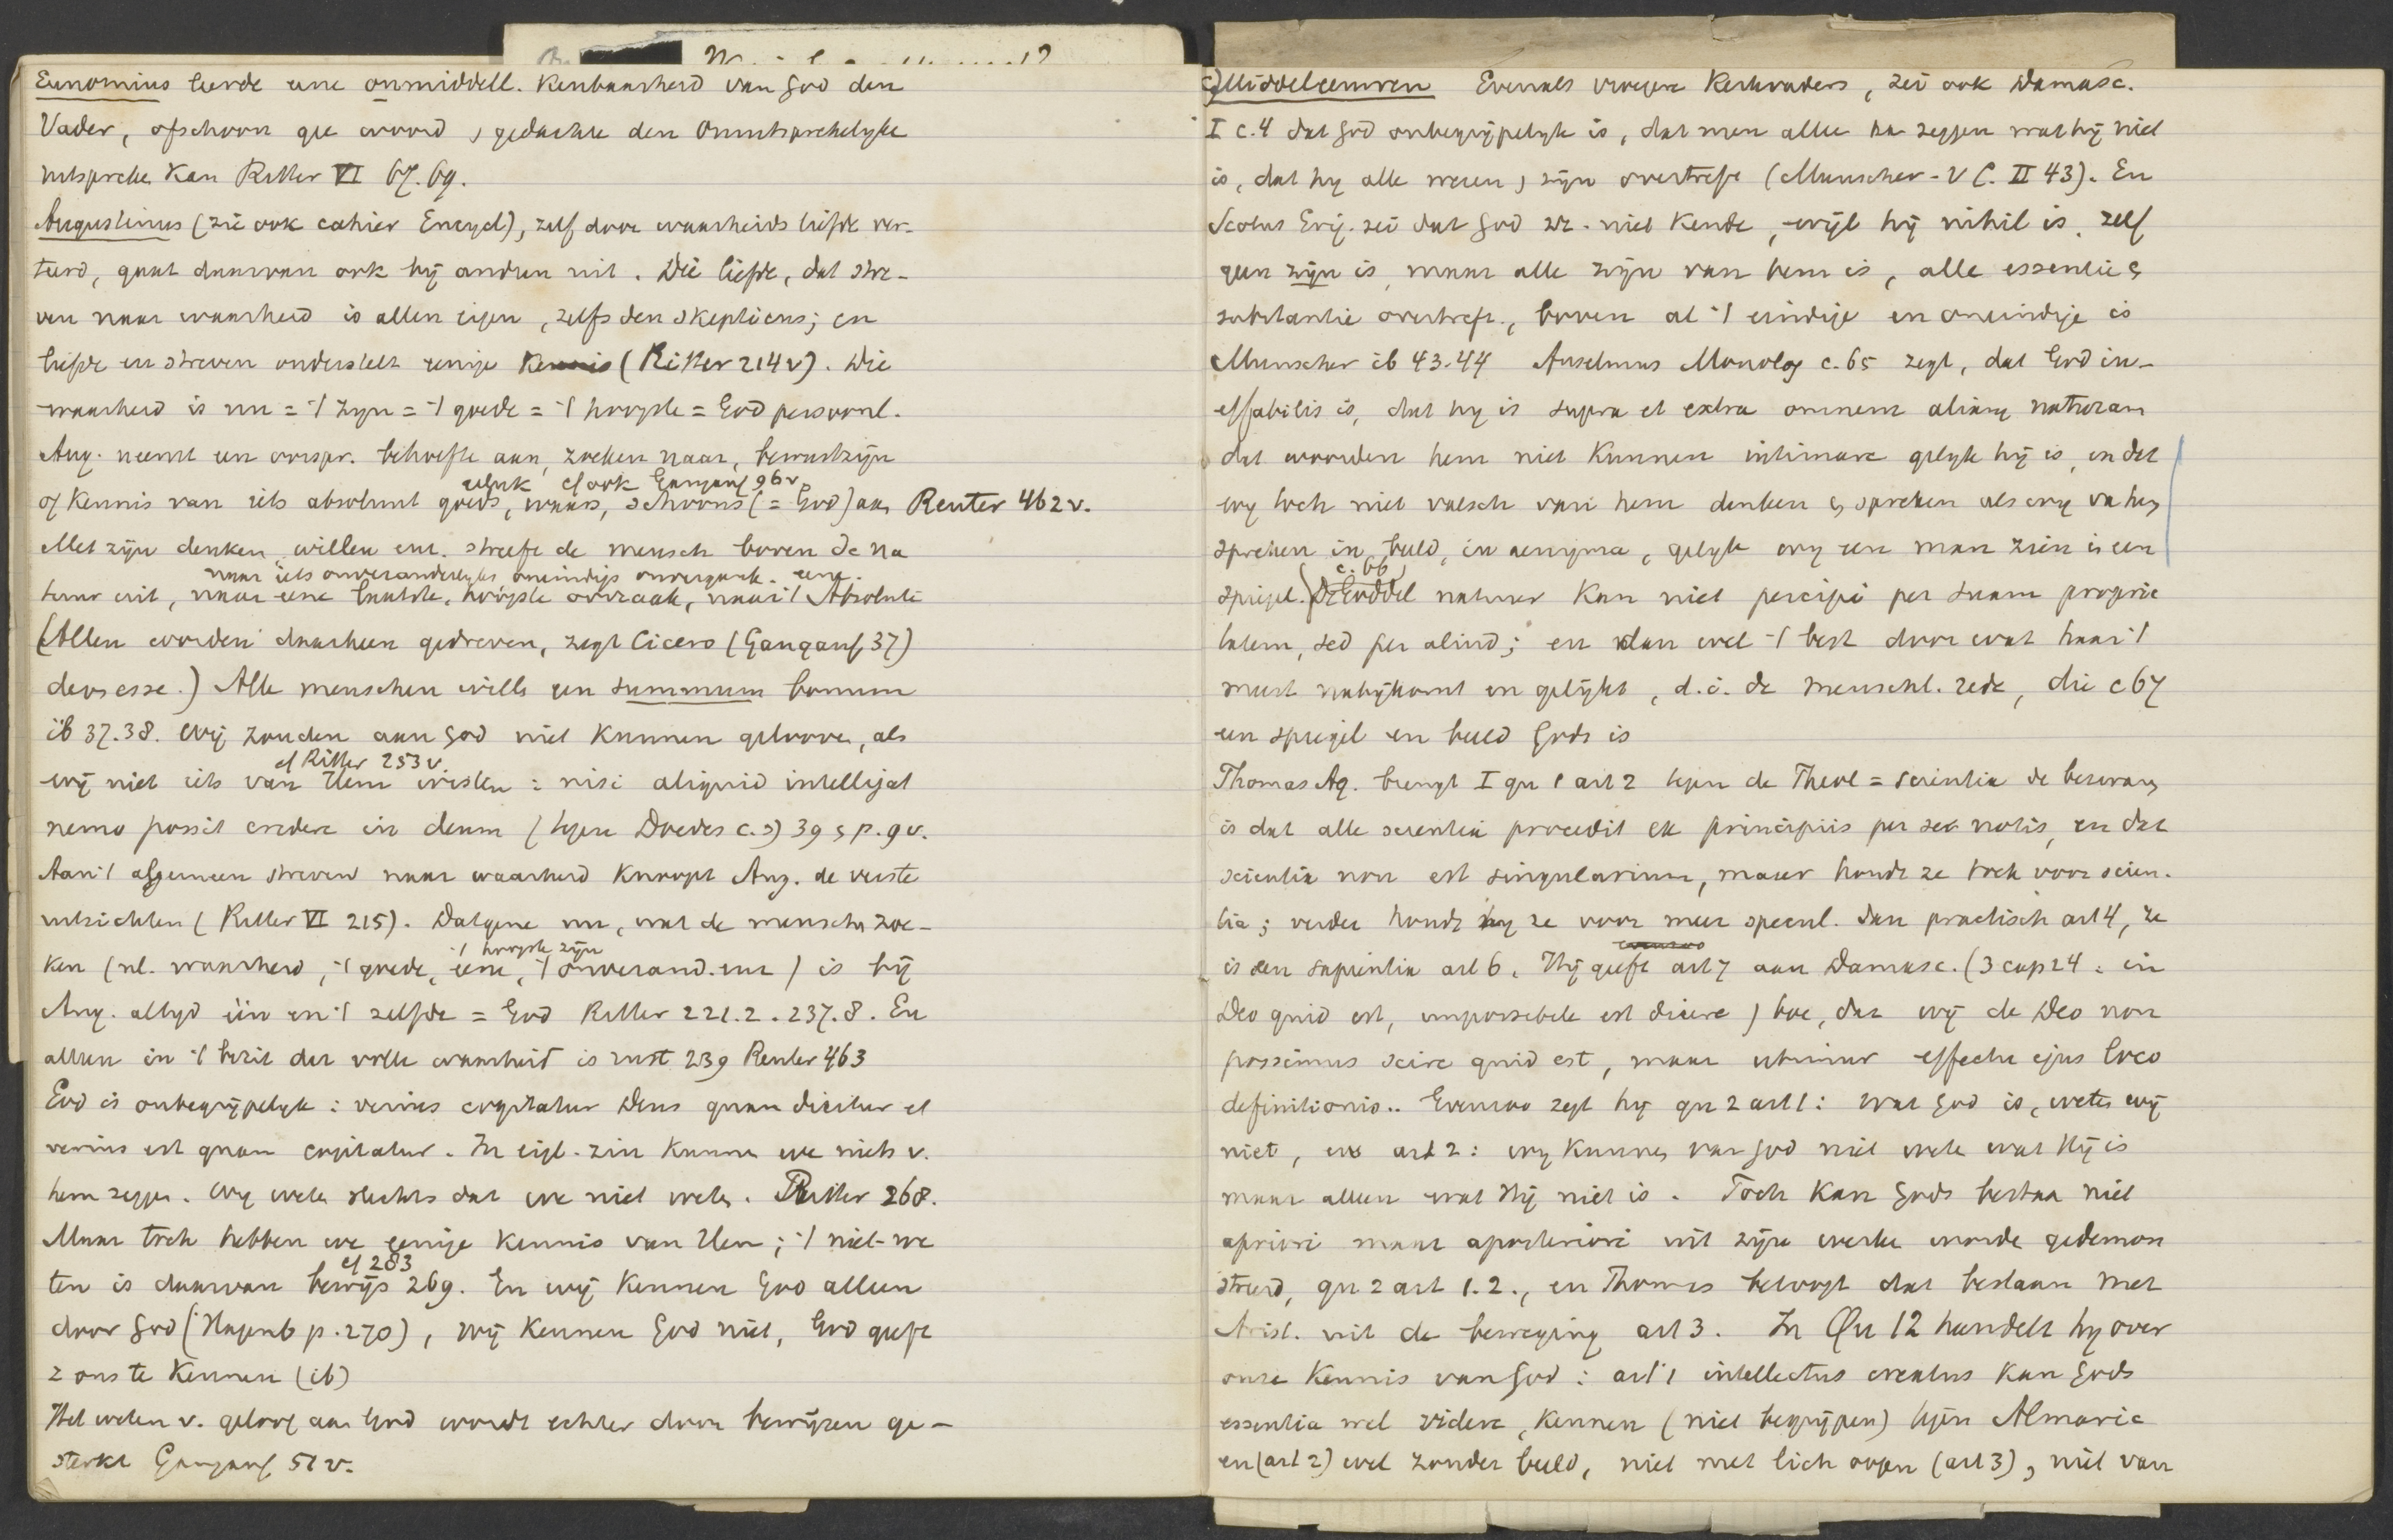 Eunomius leerde eene onmiddell. Kenbaarheid van God den
Vader, ofschoon gee woord, gedachte den Onuitsprekelyke
uitspreke kan Ritter VI 67.69.
Augustinus (zie ook cahier Encycl), zelf door waarheids liefde ver-
teerd, gaat daarvan ook bij andren uit. Die liefde, dat stre-
ven naar waarheid is allen eigen, zelfs den Skepticus; en
liefde en streven onderstelt eenige kennis (Ritter 214v). Die
waarheid is nu = 't zyn = 't goede = 't hoogste = God persoonl.
Aug. neemt een oorspr. behoefte aan, zoeken naar, bewustzijn
cf ook Gangauf 96v
of kennis van iets absoluut goeds, waars, schoons (= God) aan Reuter 462v.
Met zijn denken, willen enz. streeft de mensch boven de na
naar iets onveranderlyks, oneindigs onvergank. eene.
tuur uit, naar eene laatste, hoogste oorzaak, naar 't Absolute
(Allen worden daarheen gedreven, zegt Cicero (Gangauf 37)
deos esse.) Alle menschen wille een summum bonum
ib 37.38. Wij zouden aan God niet kunnen geloove, als
cf Ritter 253v.
wij niet iets van Hem wisten: nisi aliquid intelligat
nemo possit credere in deum (tegen Doedes c.s) 39 & p. 9v.
Aan 't algemeen streven naar waarheid knoopt Aug. de verste
uitzichten (Ritter VI 215). Datgene nu, wat de mensche zoe-
't hoogste zijn
ken (nl. waarheid, 't goede, eene, 't onverand. enz) is bij
Aug. altyd één en 't zelfde = God Ritter 221.2. 237.8. En
alleen in 't bezit der volle waarheid is rust 239 Reuter 463
God is onbegrijpelyk: verius cogitatur Deus quam dicitur et
verius est quam cogitatur. In eigl. zin kunne we niets v.
hem zegge. Wy wete slechts dat we niet wete. Ritter 268.
Maar toch hebben we eenige kennis van Hem; 't niet-we
cf 283
ten is daarvan bewijs 269. En wij kennen God alleen
door God (Hagenb p. 270), wij kennen God niet, God geeft
z ons te kennen (ib)
Het weten v. geloof aan God wordt echter door bewijzen ge-
sterkt Gangauf 51v.
c) Middeleeuwen Evenals vroegere Kerkvaders, zei ook Damasc.
I c. 4 dat God onbegrijpelyk is, dat men allee ka zeggen wat hij niet
is, dat hy alle wezen, zijn overtreft (Munscher - v C. II 43). En
Scotus Erig. zei dat God zz. niet kende, wijl hij nihil is, zelf
geen zijn is, maar alle zijn van hem is, alle essentie &
substantie overtreft, boven al 't eindige en oneindige is
Munscher ib 43.44 Anselmus Monolog c. 65 zegt, dat God in-
effabilis is, dat hy is supra et extra omnem aliam naturam
dat woorden hem niet kunnen intimare gelyk hij is, en dat
wy toch niet valsch van hem denken & spreken als wy va hem
spreken in beeld, in aenigma, gelyk wy een man zien in een
c. 66)
spiegel. (De Goddel natuur kan niet percipi per suam proprie
tatem, sed per aliud; en dan wel 't best door wat haar 't
meest nabijkomt en gelijkt, d.i. de menschl. rede, die c 67
een spiegel en beeld Gods is
Thomas Aq. brengt I qu 1 art 2 tegen de Theol = scientia de bezwaren
is dat alle scientia procedit ex principiis per se notis, en dat
scientia non est singularium, maar houdt ze toch voor scien-
tia; verder houdt hy ze voor meer specul. dan practisch art 4, ze
is een sapientia art 6. Hij geeft art 7 aan Damasc. (3 cap 24: in
Deo quid est, impossibile est dicere) toe, dat wij de Deo non
possimus scire quid est, maar utimur effectu ejus loco
definitionis.. Evenzoo zegt hij qu 2 art 1: wat God is, wete wij
niet, en art 2: wy kunnen van God niet wete wat Hij is
maar alleen wat Hij niet is. Toch kan Gods bestaa niet
apriori maar aposteriori uit zijn werke worde gedemon
streerd, qu 2 art 1.2., en Thomas betoogt dat bestaan met
Arist. uit de beweging art 3. In Qu 12 handelt hy over
onze kennis van God: art 1 intellectus creatus kan Gods
essentia wel videre, kennen (niet begrijpen) tegen Almaric
en (art 2) wel zonder beeld, niet met lich oogen (art 3), niet van